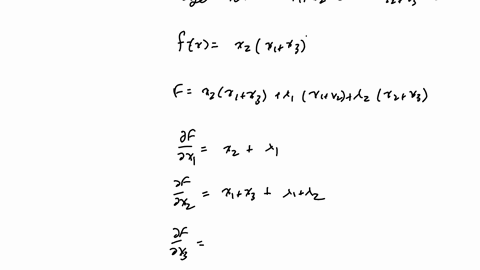 f(x) = x₂ (x₁+x₃)
F = x₂(x₁+x₃) + λ₁ (x₁+x₂) + λ₂ (x₂+x₃)
∂F/∂x₁ = x₂ + λ₁
∂F/∂x₂ = x₁+x₃ + λ₁+λ₂
∂F/∂x₃ =